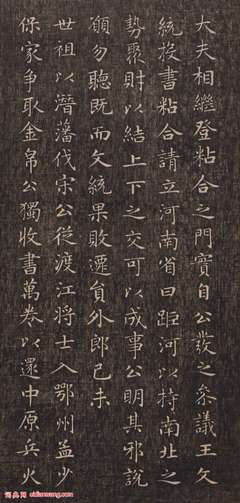 大夫相繼登粘合之門實自公發之參議王文
統投書粘合請立河南省曰距河以持南北之
勢聚財以結上下之交可以成事公明其邪說
願勿聽既而文統果敗遷員外郎已未
世祖以潛藩伐宋公從渡江將士入鄂州益少
保家爭取金帛公獨收書萬卷以還中原兵火